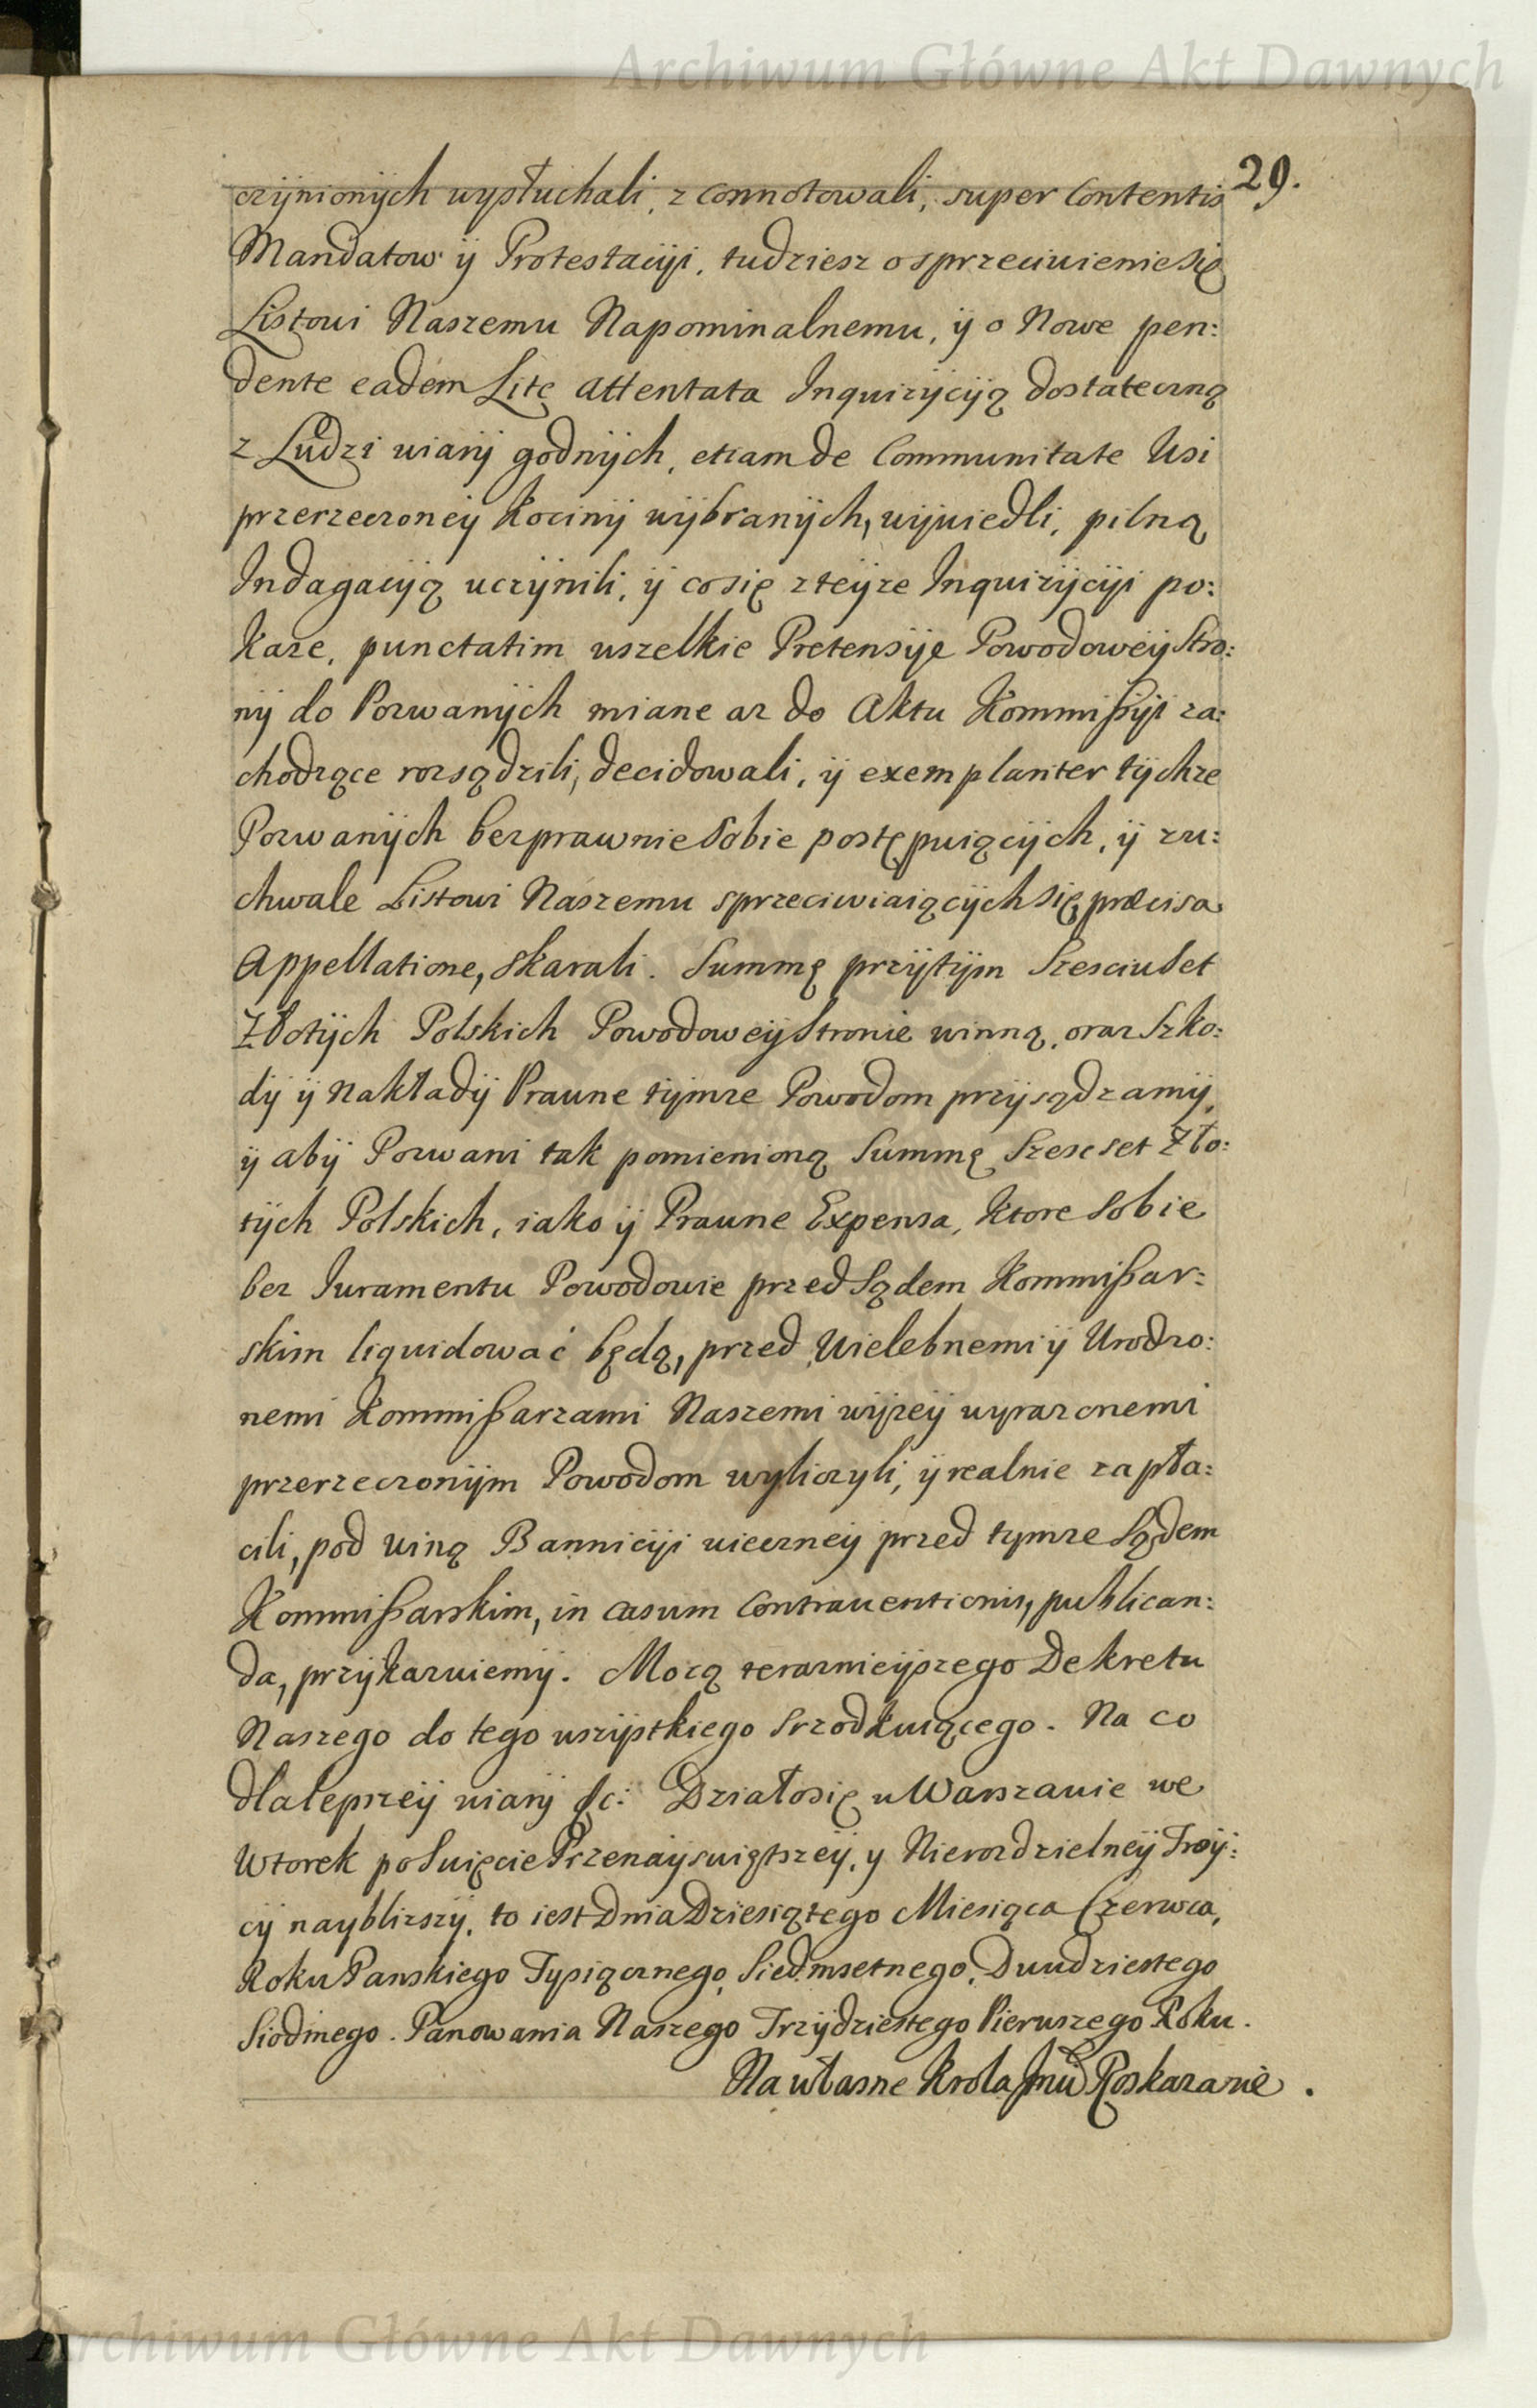 Archiwum Główne Akt Dawnych
29.
czÿnionÿch wysłuchali, z connotowali, super Contentis
Mandatow ÿ Protestacÿi, tudziesz o sprzeciwienie się
Listowi Naszemu Napominalnemu, ÿ o Nowe pen:
dente eadem Lite attentata Inquizÿcÿą dostateczną
z Ludzi wiarÿ godnÿch, etiam de Communitate Wsi
przerzeczoneÿ Kocinÿ wÿbranÿch, wÿwiedli, pilną
Indagacÿą uczÿnili, ÿ co się z teÿze Inquizÿcÿi po:
kaze, punctatim wszelkie Pretensÿe Powodoweÿ Stro:
nÿ do Pozwanÿch miane az do Aktu Kommißÿi za:
chodzące rozsądzili, decidowali, ÿ exemplariter tÿchze
Pozwanÿch bezprawnie sobie postępuiącÿch, ÿ zu:
chwale Listowi Naszemu sprzeciwiaiącÿch się, præcisa
Appellatione, skarali. Summę przÿtÿm Szesciuset
Złotÿch Polskich Powodoweÿ Stronie winną, oraz Szko:
dÿ ÿ Nakładÿ Prawne tÿmze Powodom przÿsądzamÿ,
ÿ abÿ Pozwani tak pomienioną Summę Szescset Zło:
tÿch Polskich, iako ÿ Prawne Expensa, ktore sobie
bez Iuramentu Powodowie przed Sądem Kommißar:
skim liquidować będą, przed Wielebnemi ÿ Urodzo:
nemi Kommißarzami Naszemi wÿzeÿ wyrazonemi
przerzeczonÿm Powodom wyliczyli, ÿ realnie zapła:
cili, pod winą Bannicÿi wieczneÿ przed tymze Sądem
Kommißarskim, in casum Contraventionis, publican:
da, przÿkazuiemÿ. Mocą terazniejszego Dekretu
Naszego do tego wszÿstkiego srzodkuiącego. Na co
dla lepszeÿ wiarÿ &c: Działo się w Warszawie we
Wtorek po Swięcie Przenaÿswiętszeÿ, y Nierozdzielneÿ Troÿ:
cÿ nayblizszÿ, to iest Dnia Dziesiątego Miesiąca Czerwca,
Roku Panskiego Tysiącznego, Siedmsetnego, Dwudziestego
Siodmego. Panowania Naszego Trzÿdziestego Pierwszego Roku.
Na własne Krola Jmci Roskazanie.
Archiwum Główne Akt Dawnych